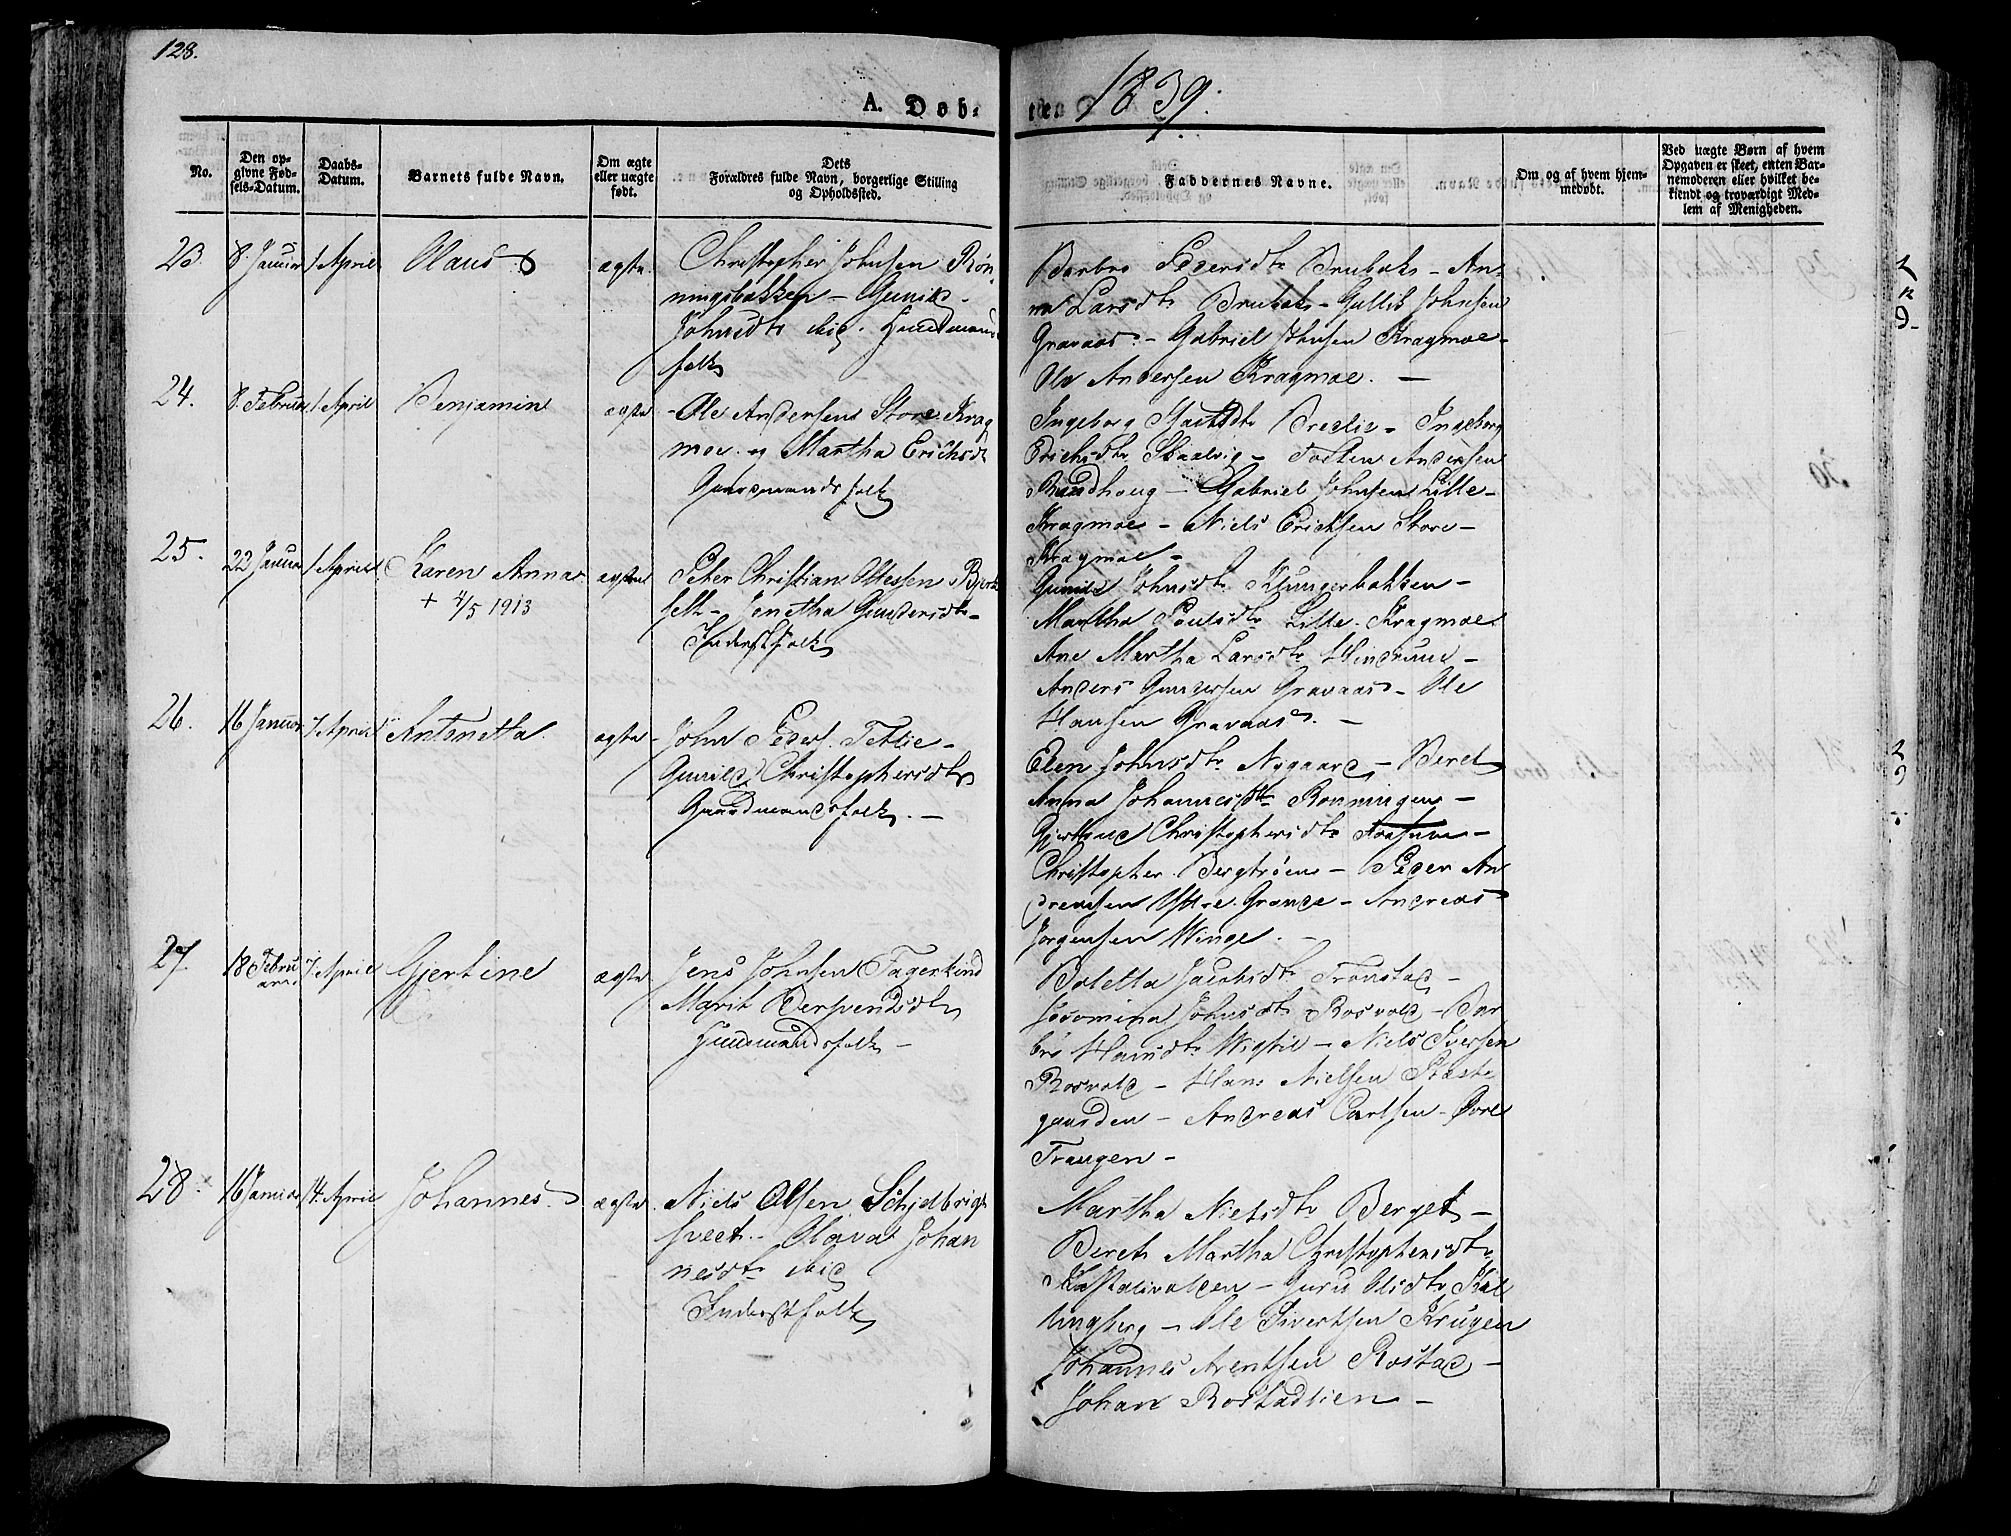 128.
A. Døb-
te 1839.
No.
Den op-
givne Fød-
sels-Datum.
Daabs-
Datum.
Barnets fulde Navn.
Om ægte
eller uægte
født.
Dets
Forældres fulde Navn, borgerlige Stilling
og Opholdssted.
Faddernes Navne.
Om og af hvem hjem-
medøbt.
Ved uægte Børn af hvem
Opgaven er skeet, enten Bar-
nemoderen eller hvilket be-
kjendt og troværdigt Med-
lem af Menigheden.
23 8. Januar 1 April Olaus ægte
Christopher Johnsen Røn-
ningsbakken - Gunild
Johnsdtr ibid. Huusmands
folk
Barbro Pedersdtr Brubak - An-
ne Larsdtr Brubak - Gullik Johnsen
Gravaas - Gabriel Johnsen Kragmoe -
Ole Andersen Kragmoe. -
24. 8. Februar 1 April Benjamin ægte
Ole Andersen Store Krag
moe og Martha Erichsdtr
Gaardmandsfolk
Ingeborg Breelie - Ingeborg
Erichsdtr - Andersen
- Gabriel Johnsen Lille-
Kragmoe - Niels Erichsen Store -
Kragmoe -
25. 22 Januar 1 April Karen Anna ægte
+ 4/5 1913
Peter Christian
- Jenetha Gundersdtr -
Inderstfolk
Gunild Johnsdtr Klungerbakken -
Martha Paulsdtr Lille-Kragmoe
Ane Martha Larsdtr -
Anders Gundersen Gravaas - Ole
Hansen Gravaas. -
26. 16 Januar 7 April Antonetta ægte
John Peders. Tetlie -
Gunild Christophersdtr
Gaardmandsfolk. -
Elen Johnsdtr Nygaard - Beret
Anna Johannesdtr Rønningen -
Christophersdtr -
Christopher Bergtrøen - Peder An
dreasen Ystre Grande - Andreas
Jørgensen Winge. -
27. 18 Febru
ar 7 April Gjertine ægte
Jens Johnsen Fagerlind
Marit
Huusmandsfolk -
Boletta Jacobsdtr Tronstad -
Johnsdtr Rosvold - Bar
bro Hansdtr - Niels Iversen
Rosvold - Hans Nielsen Præste
gaarden - Andreas Carlsen Øvre
Trangen -
28. 16 Januar 14. April Johannes ægte
Niels Olsen
- Olava Johan
nesdtr ibid
Inderstfolk
Martha Nielsdtr Berget -
Bereth Martha Christophersdtr
- Guru Olsdtr
- Ole Sivertsen Krugen
Johannes Arentsen Rostad -
Johan Rostadlien -